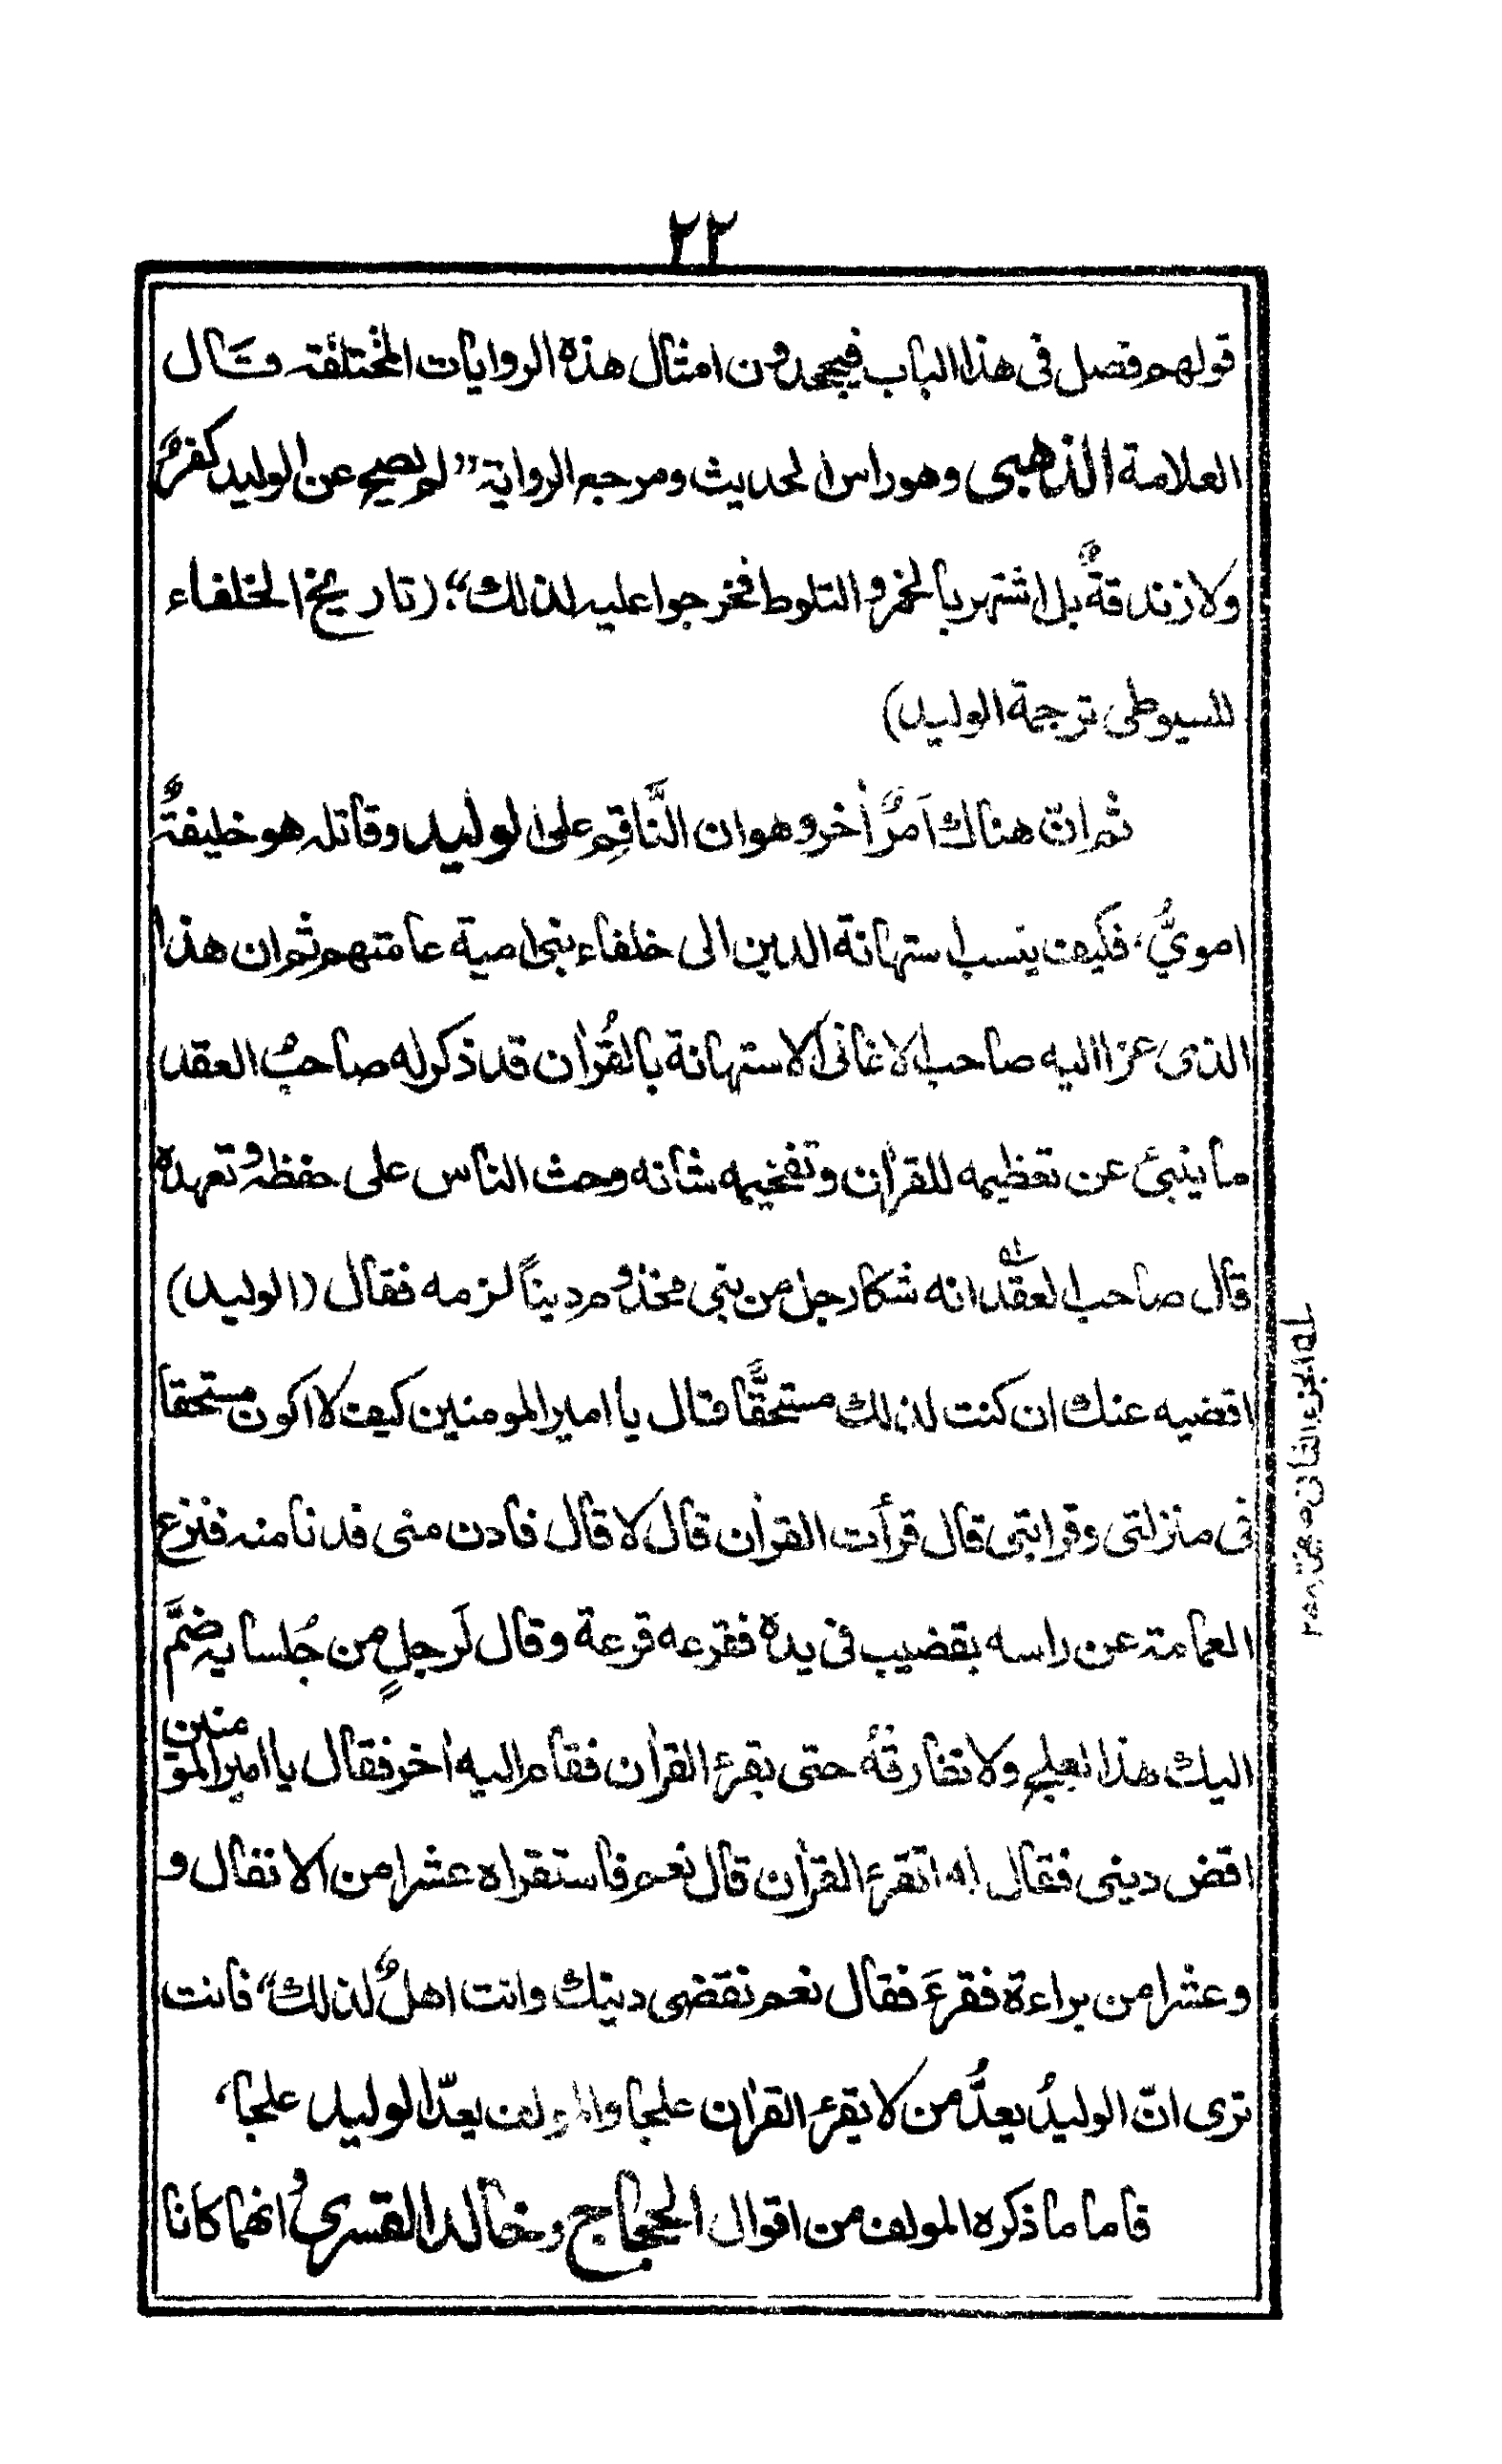 ٢٢
قولهم فصل فى هذا الباب فيجحدون امثال هذه الروايات المختلقة قال
العلامة الذهبى وهو راس الحديث ومرجع الرواية "لم يصح عن الوليد كفرٌ
ولا زندقةٌ بل اشتهر بالخمر و التلوط فخرجوا عليه لذلك"؛ (تاريخ الخلفاء
للسيوطى ترجمة الوليد)
ثم انّ هناك اَمرٌ اٰخر وهو ان النَّاقِم على الوليد وقاتله هو خليفةٌ
امويٌّ، فكيف ينسب استهانة الدين الى خلفاء بنى امية عامتهم ثم ان هذا
الذى عزا اليه صاحب الاغانى الاستهانة بالقُراٰن قد ذكر له صاحبُ العقد
ما ينبئ عن تعظيمه للقراٰن وتفخيمه شانه وحث الناس على حفظه و تعهده
قال صاحب العقدله انه شكا رجل من بنى مخزوم ديناً لزمه فقال (الوليد)
اقضيه عنك ان كنت لذلك مستحقًّا قال يا امير المومنين كيف لا اكون مستحقا
فى منزلتى وقرابتى قال قرأت القراٰن قال لا قال فادن منى فدنا منه فنزع
العمامة عن راسه بقضيب فى يده فقرعه قرعة وقال لَرجلٍ من جُلسايه ضمَّ
اليك هذا العلج ولا تفارقهُ حتى يقرء القراٰن فقام اليه اٰخر فقال يا امير المومنين
اقض دينى فقال له اتقرء القراٰن قال نعم فاستقراه عشرا من الانفال و
وعشرا من براءة فقرءَ فقال نعم نقضى دينك وانت اهلٌ لذلك" فانت
ترى انّ الوليدُ يعدُّ من لا يقرء القراٰن علجا والمولف يعدّ الوليد علجا،
فاما ما ذكره المولف من اقوال الحجاج وخالد القسرى و انهما كانا
له الجزء الثانى صفحة